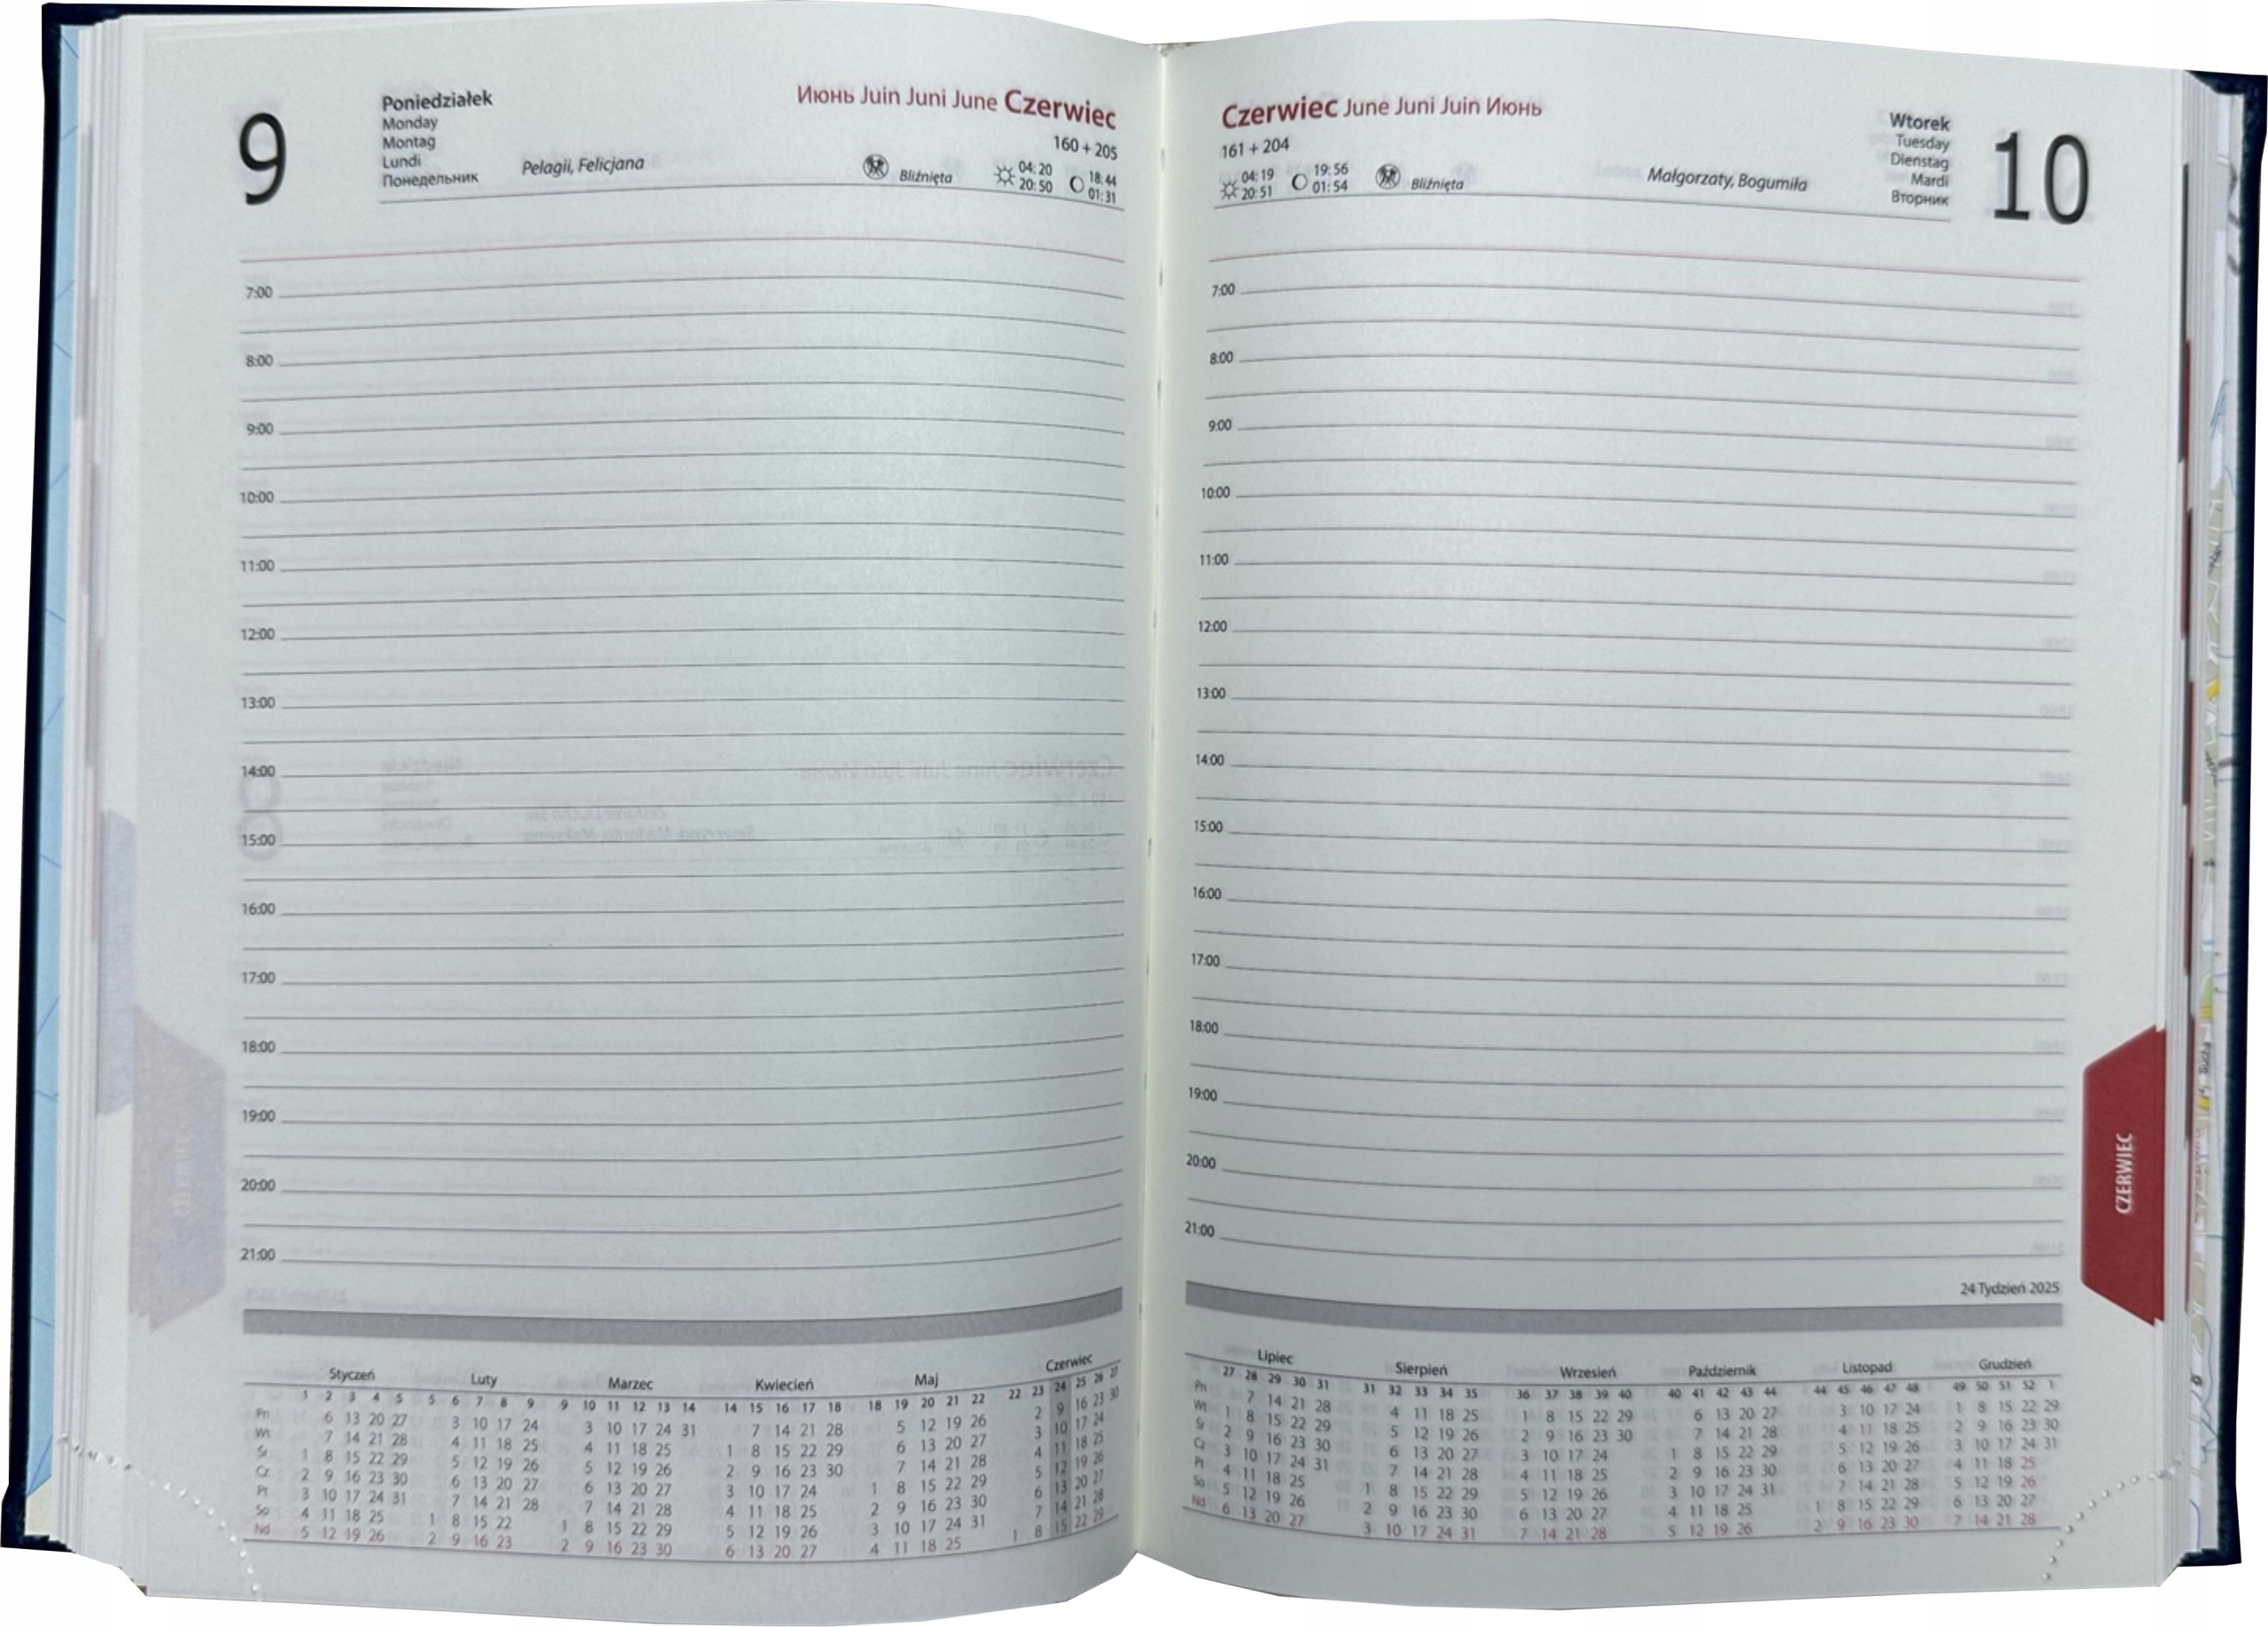 9
Poniedziałek
Monday
Montag
Lundi
Понедельник
Pelagii, Felicjana
Июнь Juin Juni June Czerwiec
160 + 205
Bliźnięta
04:20 18:44
20:50 01:31
7:00
8:00
9:00
10:00
11:00
12:00
13:00
14:00
15:00
16:00
17:00
18:00
19:00
20:00
21:00
Styczeń Luty Marzec Kwiecień Maj Czerwiec
1 2 3 4 5 5 6 7 8 9 9 10 11 12 13 14 14 15 16 17 18 18 19 20 21 22 22 23 24 25 26 27
Pn 6 13 20 27 3 10 17 24 3 10 17 24 31 7 14 21 28 5 12 19 26 2 9 16 23 30
Wt 7 14 21 28 4 11 18 25 4 11 18 25 1 8 15 22 29 6 13 20 27 3 10 17 24
Śr 1 8 15 22 29 5 12 19 26 5 12 19 26 2 9 16 23 30 7 14 21 28 4 11 18 25
Cz 2 9 16 23 30 6 13 20 27 6 13 20 27 3 10 17 24 1 8 15 22 29 5 12 19 26
Pt 3 10 17 24 31 7 14 21 28 7 14 21 28 4 11 18 25 2 9 16 23 30 6 13 20 27
So 4 11 18 25 1 8 15 22 1 8 15 22 29 5 12 19 26 3 10 17 24 31 7 14 21 28
Nd 5 12 19 26 2 9 16 23 2 9 16 23 30 6 13 20 27 4 11 18 25 1 8 15 22 29
Czerwiec June Juni Juin Июнь
161 + 204
04:19 19:56
20:51 01:54
Bliźnięta
Małgorzaty, Bogumiła
Wtorek
Tuesday
Dienstag
Mardi
Вторник
10
7:00
8:00
9:00
10:00
11:00
12:00
13:00
14:00
15:00
16:00
17:00
18:00
19:00
20:00
21:00
CZERWIEC
24 Tydzień 2025
Lipiec Sierpień Wrzesień Październik Listopad Grudzień
27 28 29 30 31 31 32 33 34 35 36 37 38 39 40 40 41 42 43 44 44 45 46 47 48 49 50 51 52 1
Pn 7 14 21 28 4 11 18 25 1 8 15 22 29 6 13 20 27 3 10 17 24 1 8 15 22 29
Wt 1 8 15 22 29 5 12 19 26 2 9 16 23 30 7 14 21 28 4 11 18 25 2 9 16 23 30
Śr 2 9 16 23 30 6 13 20 27 3 10 17 24 1 8 15 22 29 5 12 19 26 3 10 17 24 31
Cz 3 10 17 24 31 7 14 21 28 4 11 18 25 2 9 16 23 30 6 13 20 27 4 11 18 25
Pt 4 11 18 25 1 8 15 22 29 5 12 19 26 3 10 17 24 31 7 14 21 28 5 12 19 26
So 5 12 19 26 2 9 16 23 30 6 13 20 27 4 11 18 25 1 8 15 22 29 6 13 20 27
Nd 6 13 20 27 3 10 17 24 31 7 14 21 28 5 12 19 26 2 9 16 23 30 7 14 21 28